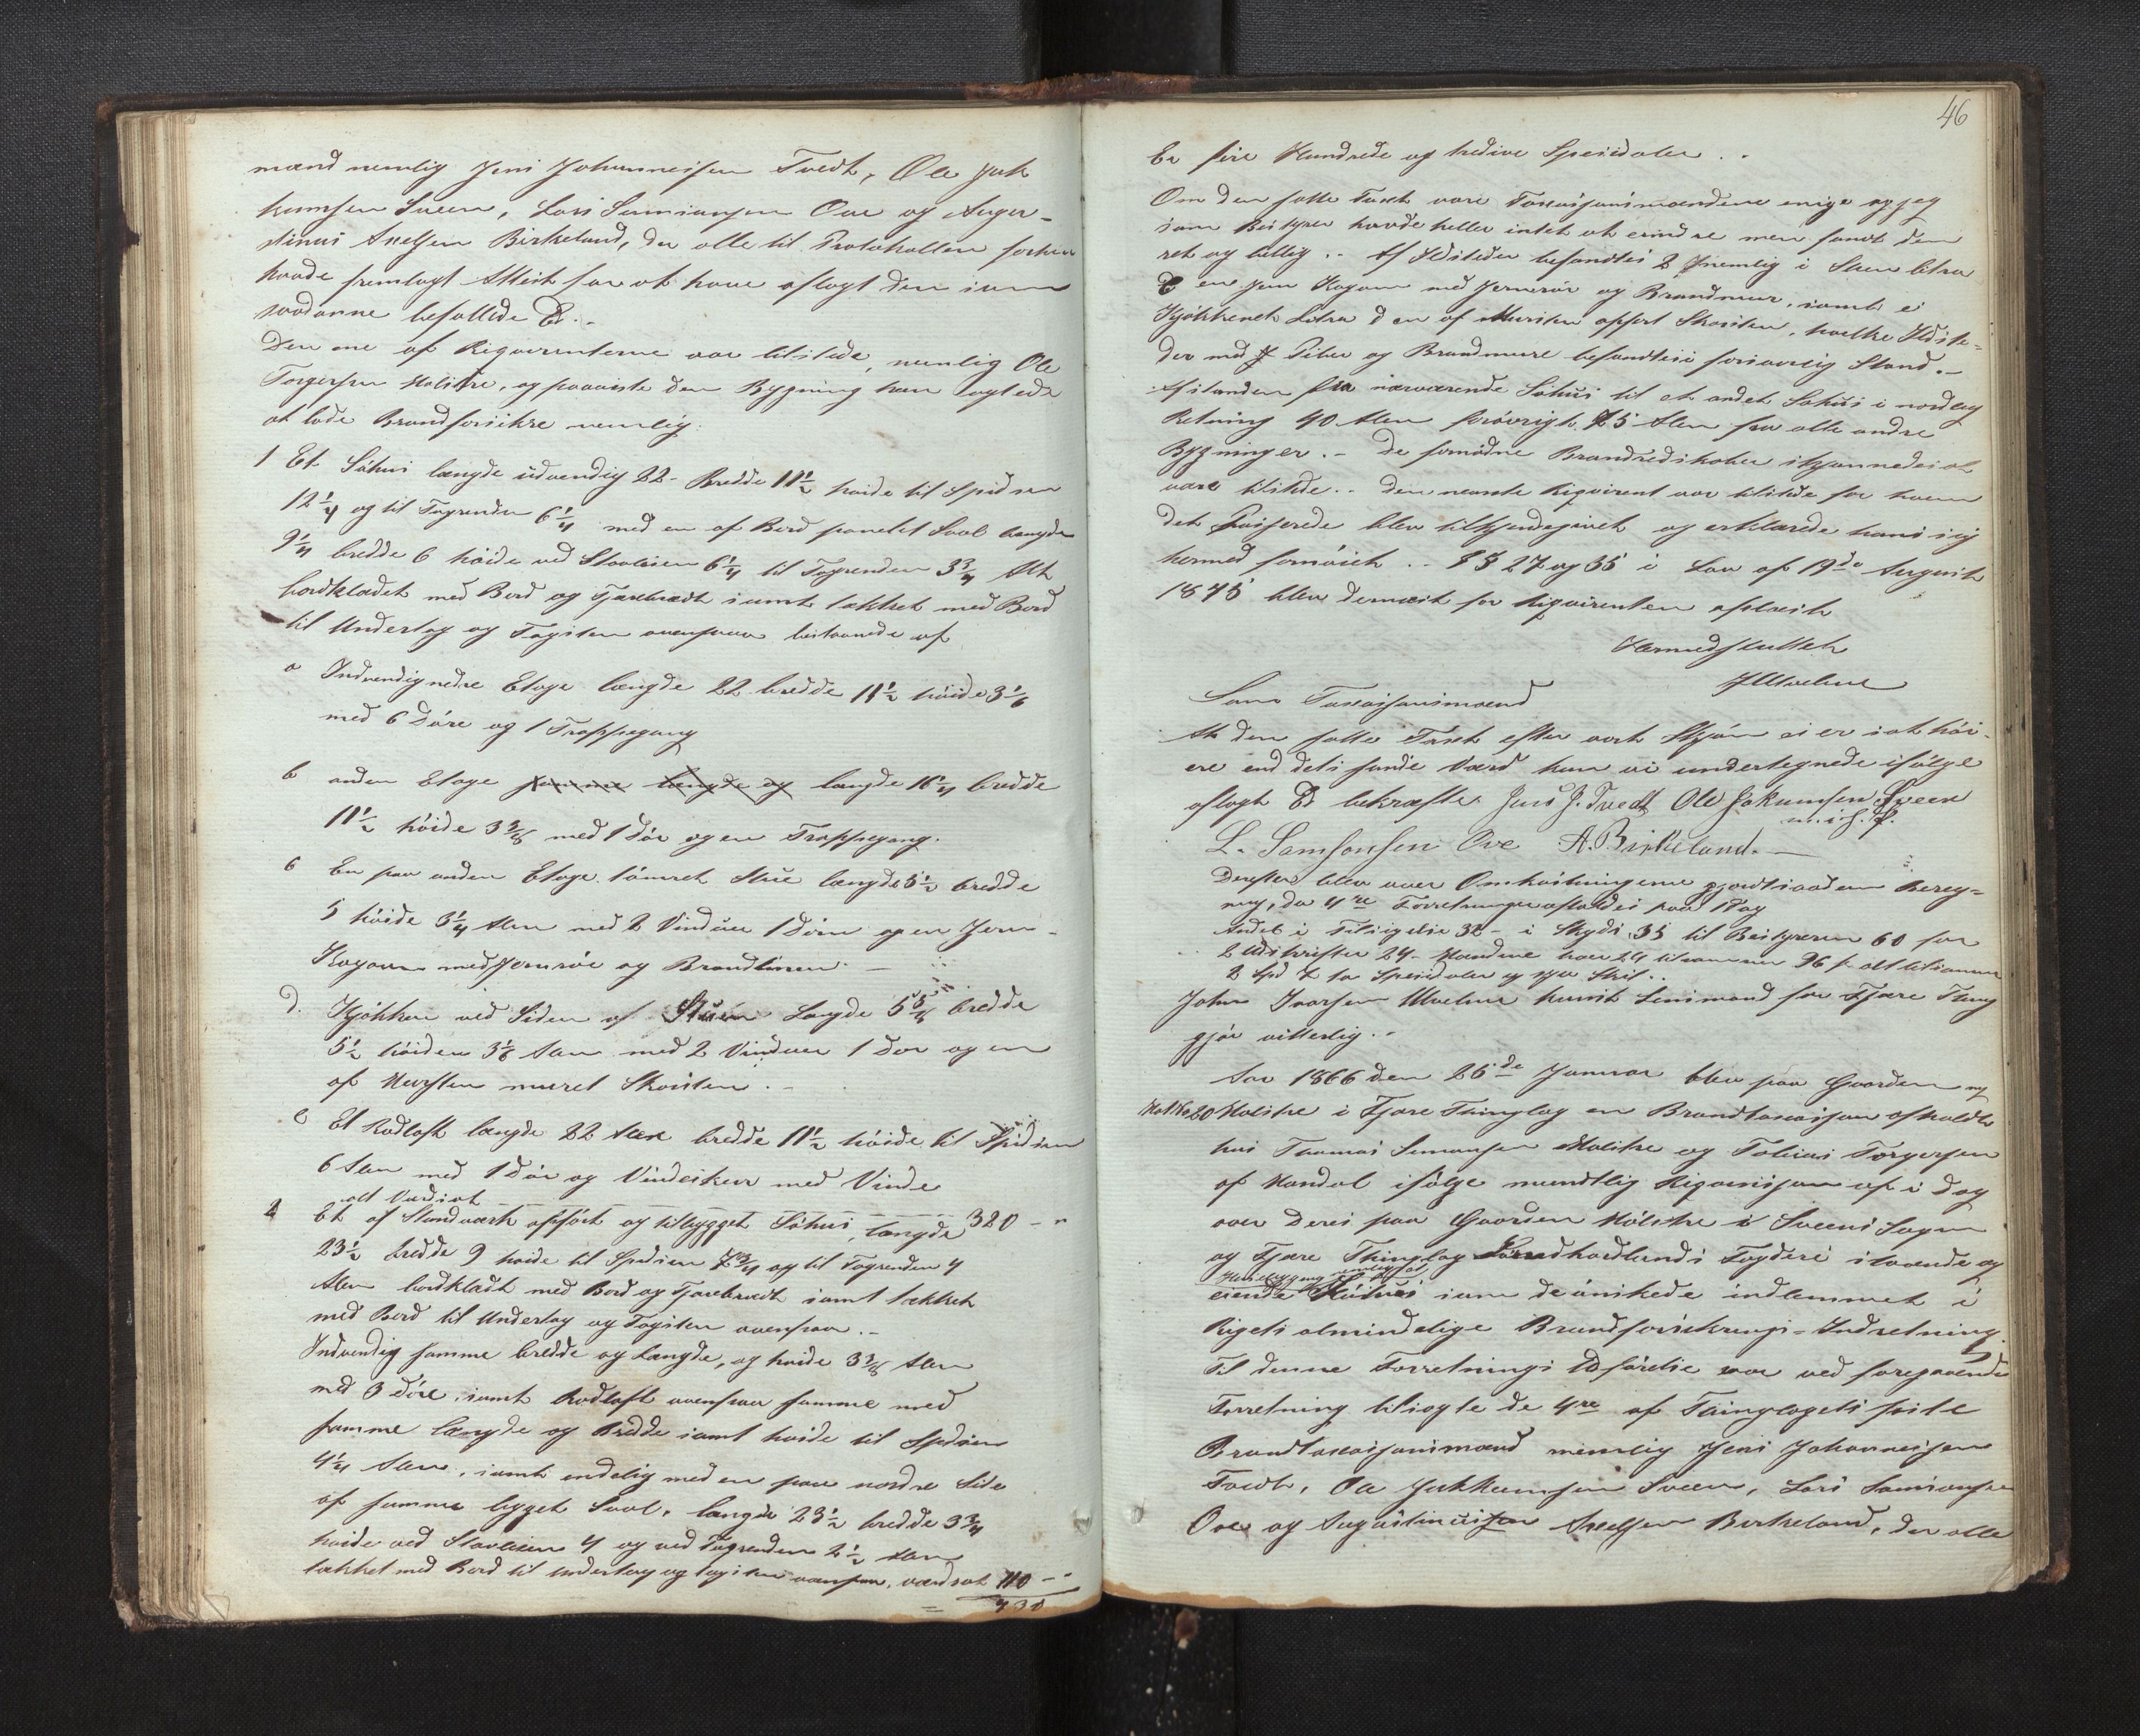 mænd nemlig Jens Johannesen Tvedt, Ole Jak
kumsen Sveen, Lars Samsonsen Ove og Augu-
stinus Axelsen Birkeland, der alle til Protokollen forhen
havde fremlagt Attest for at have aflagt den som
saadanne befallede Ed..
Den ene af Reqvirenterne var tilstede, nemlig Ole
Torgersen Holstre, og paaviste den Bygning han agtede
at lade Brandforsikre nemlig:
1 Et Söhus længde udvendig 22- Bredde 11½ höide til Spidsen
12¼ og til Tagrenden 6¼ med en af Bord panelet Sval længde
9¼ bredde 6 höide ved Stavleien 6¼ til Tagrenden 3¾ Alt
bordklædet med Bord og Tjærebredt samt tækket med Bord
til Undertag og Tagsten ovenpaa bestaaende af
a Indvendig nedre Etage længde 22 bredde 11½ höide 3⅙
med 6 Döre og 1 Trappegang
b anden Etage samme længde og længde 16¼ bredde
11½ höide 3 med 1 Dör og en Trappegang.
c En paa anden Etage tömret Stue længde 5½ bredde
5 höide 3¼ Alen med 2 Vinduer 1 Dörr og en Jern-
Kogovn med Jernrör og Brandmur. —
d. Kjökken ved Siden af Stuen Længde 5 bredde
5½ höiden 3⅙ Alen med 2 Vinduer 1 Dör og en
af Mursten muret Skorsten. -
e Et Rodloft længde 22 Alen bredde 11½ höide til Spidsen
6 Alen med 1 Dör og Vindeskur med Vinde
alt Værdsat 320 - "
2 Et af Standværk opfört og tilbygget Söhus, længde
23½ bredde 9 höide til Spidsen 7¾ og til Tagrenden 4
Alen bordklædt med Bord og Tjærebredt samt tækket
med Bord til Undertag og Tagsten ovenpaa.-
Indvendig samme bredde og Længde, og höide 3 Alen
med 3 Döre, samt Rodloft ovenpaa samme med
samme Længde og Bredde samt höide til Spidsen
4¼ Alen, samt endelig med en paa nordre Side
af samme bygget Sval, længde 23½ bredde 3¾
höide ved Stavleien 4 og ved Tagrenden 2½ Alen
tækket med Bord til undertag og tagsten ovenpaa, værdsat 110 - "
= 430
46
Er fire Hundrede og tredive Speciedaler..
Om den satte Taxt vare Taxasjonsmændene enige og jeg
som Bestyrer havde heller intet at erindre men fandt den
ret og billig.. Af Ildsteder befandtes 2 nemlig i Stuen litra
c en Jern Kogovn med Jernrör og Brandmur, samt i
Kjökkenet Litra d en af Mursten opfört Skorsten, hvilke Ildste-
der med Piber og Brandmure befandtes i forsvarlig Stand.-
Afstanden fra nærværende Söhus til et andet Söhus i nordlig
Retning 40 Alen forövrigt 25 Alen fra alle andre
Bygninger. - De fornödne Brandredskaber skjönnedes at
være tilstede.. Den nævnte Reqvirent var tilstede for hvem
det Passerede blev tilkjendegivet og erklærede hans sig
hermed fornöiet.. §§ 27 og 35 i Lov af 19de August
1845 blev dernæst for Reqvirenten oplæst
Hermed sluttet
Som Taxasjonsmænd
At den satte Taxt efter vort Skjön ei er sat höi-
ere end dets sande Værd kun vi undertegnede ifölge
aflagt Ed bekræfte. Jens J. Tvedt Ole Jakumsen Sveen
m. i. h. P.
L. Samsonsen Ove A. Birkeland. —
Derefter blev over Omkostningerne gjordt saadan Bereg-
ning, da 4re Forretninger afholdes paa 1 Dag
Andel i Tilsigelse 32- i Skyds 35 til Bestyreren 60 for
2 Udskrifter 24- Mændene hver 24 tilsammen 96 ß alt tilsammen
2 Spd 7 to Speciedaler og syv Skil..
John Ivarsen konst Lensmand for Fjære Thing
gjör vitterlig..
Aar 1866 den 26de Januar blev paa Gaarden ny
Matr 20 Holstre i Fjære Thinglag en Brandtaxasjon afholdt
hos Thomas Simonsen Holstre og Tobias Torgersen
af Mandal ifölge mundtlig Reqvisisjon af i Dag
over Deres paa Gaarden Holstre i Sveens Sogn
og Fjære Thinglag Söndhordlands Fogderi staaende og
Husebygging nemlig et
eiende Söhus som de önskede indlemmet i
Rigets almindelige Brandforsikrings-Indretning.
Til denne Forretnings Udförelse var ved foregaaende
Forretning tilsagte de 4re af Thinglagets faste
Brandtaxasjonsmænd nemlig Jens Johannesen
Tvedt, Ole Jakkumsen Sveen, Lars Samsonsen
Ove og Augustinus Axelsen Birkeland, der alle